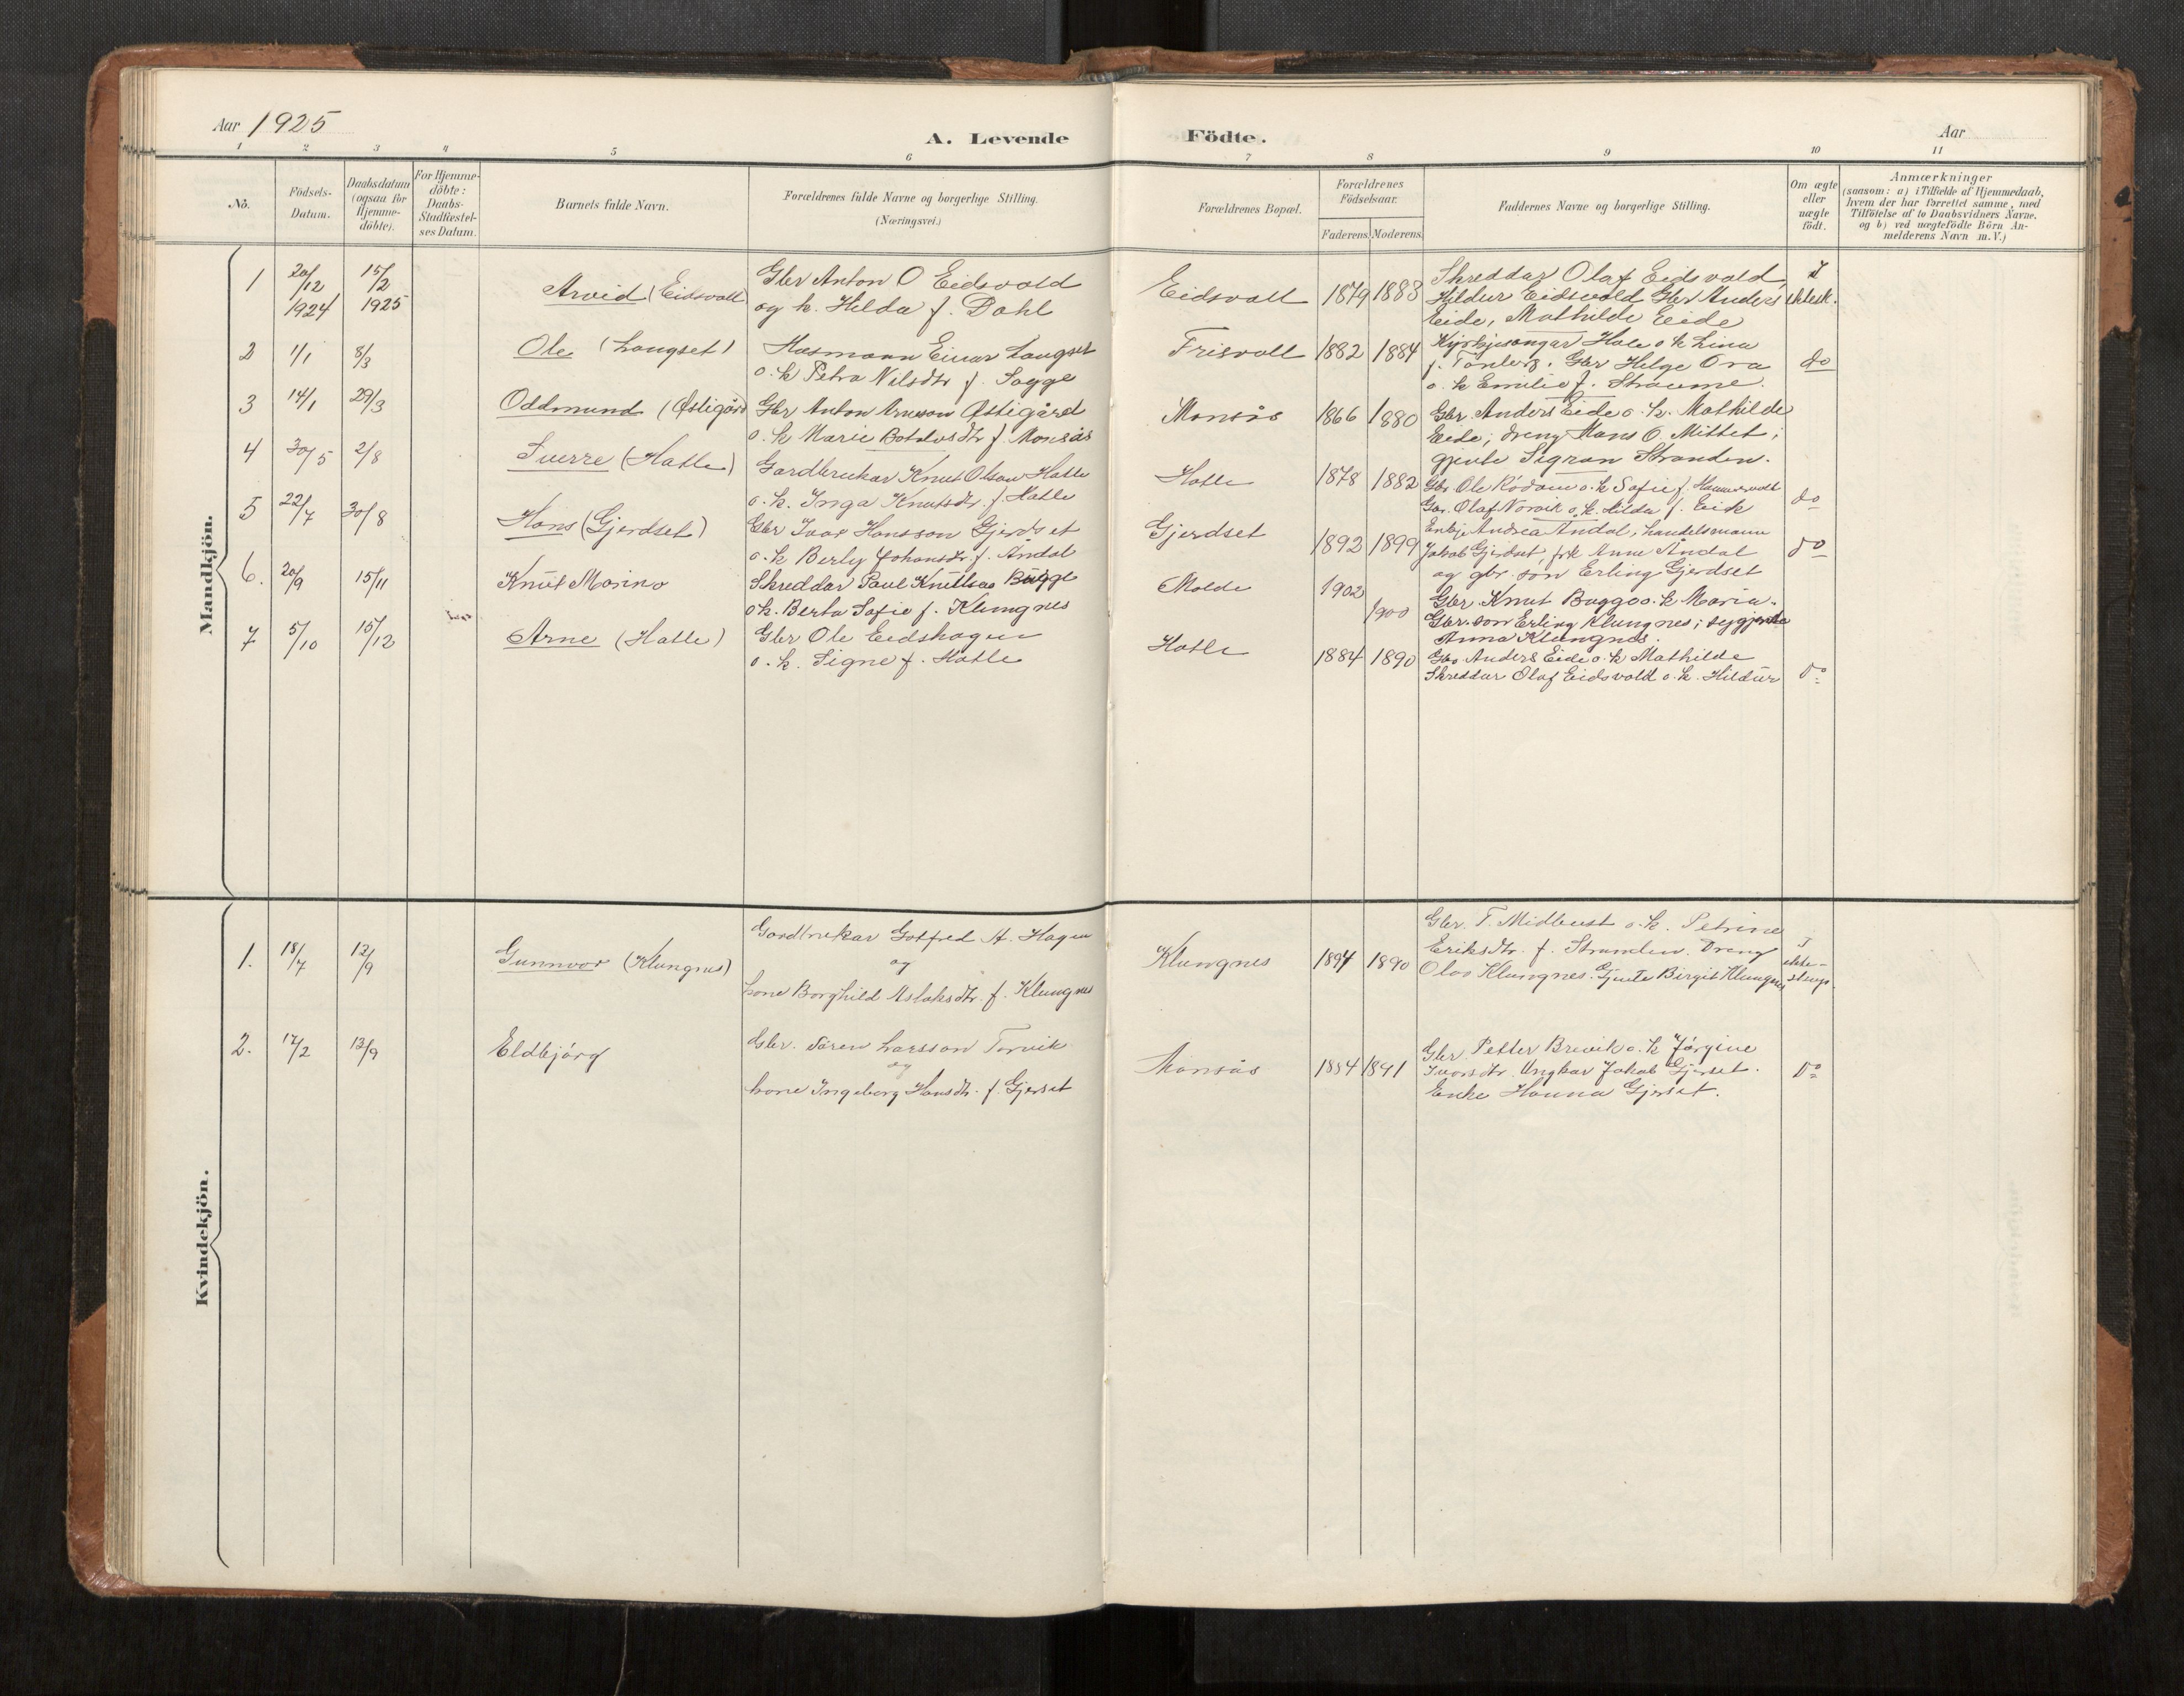 Aar 1925
A. Levende Födte.
Aar
1 2 3 4 5 6 7 8 9 10 11
No.
Födsels-
Datum.
Daabsdatum
(ogsaa for
Hjemme-
döbte).
For Hjemme-
döbte:
Daabs-
Stadfæstel-
ses Datum.
Barnets fulde Navn.
Forældrenes fulde Navne og borgerlige Stilling.
(Næringsvei.)
Forældrenes Bopæl.
Forældrenes
Födselsaar.
Faderens. Moderens.
Faddernes Navne og borgerlige Stilling.
Om ægte
eller
uægte
födt.
Anmærkninger
(saasom: a) i Tilfælde af Hjemmedaab,
hvem der har forrettet samme, med
Tilföielse af to Daabsvidners Navne.
og b) ved uægtefödte Börn An-
melderens Navn m.V.)
Mandkjön.
1 20/12 1924 15/2 1925 Arvid (Eidsvoll)
Gbr Anton O Eidsvold
og k. Hilda f. Dahl
Eidsvoll 1879 1883
Skreddar Olaf Eidsvold,
Hildur Eidsvold Gbr Anders
Eide, Mathilde Eide
I
ektesk.
2 1/1 8/3 Ole (Langset)
Husmann Einar Langset
o. k Petra Nilsdtr f. Sogge
Frisvoll 1882 1884
Kyrkjesongar Hole o k Lina
f. Tonberg. Gbr Helge Ora
o. k Emilie f. Straume.
do
3 14/1 29/3 Oddmund (Østigård
Gbr Anton Arneson Østigård
o. k Marie Botolvsdtr f. Monsås
Monsås 1866 1880
Gbr. Anders Eide o. k. Mathilde
Eide; dreng Hans O Mittet;
gjente Sigrun Stranden.
4 30/5 2/8 Sverre (Hatle)
Gardbrukar Knut Olson Hatle
o. k. Inga Knutsdtr. f. Hatle
Hatle 1878 1882
Gbr. Ole Rödam o. k Sofie f. Hammervoll
Gbr. Olaf Norvik o. k. Hilda f. Eide
do
5 22/7 30/8 Hans (Gjerdset)
Gbr Ivar Hansson Gjerdset
o. k Berly Johansdr. f. Åndal
Gjerdset 1892 1899
Enkje Andrea Åndal, handelsmann
Jakob Gjerdset, frk Anne Åndal
og gbr. son Erling Gjerdset
do
6. 20/9 15/11 Knut Marino
Skreddar Paul Knutson Bugge
o k. Berta Sofie f. Klungnes
Molde 1902 1900
Gbr Knut Bugge o. k Maria.
Gbr. son Erling Klungnes; sygjente
Anna Klungnes.
7 5/10 15/12 Arne (Hatle)
Gbr Ole Eidshagen
o. k. Signe f. Hatle
Hatle 1884 1890
Gbr Anders Eide o. k Mathilde
Skreddar Olaf Eidsvold o. k. Hildur
do
Kvindekjön.
1. 18/7 13/9 Gunnvor (Klungnes)
Gardbrukar Gotfred A. Hagen
og
kone Borghild Aslaksdtr. f. Klungnes
Klungnes 1894 1890
Gbr. T. Midbust o. k. Petrine
Eriksdtr. f. Strumlen. Dreng
Olav Klungnes. Gjente Birgit Klungnes
I
ekte-
2. 17/2 13/9 Eldbjörg
Gbr. Sören Larsson Torvik
og
kone Ingeborg Hansdtr. f. Gjerset
Monsås 1884 1891
Gbr. Petter Brevik o. k Jörgine
Ivarsdtr. Ungkar Jakob Gjerset.
Enke Hanna Gjerset.
do